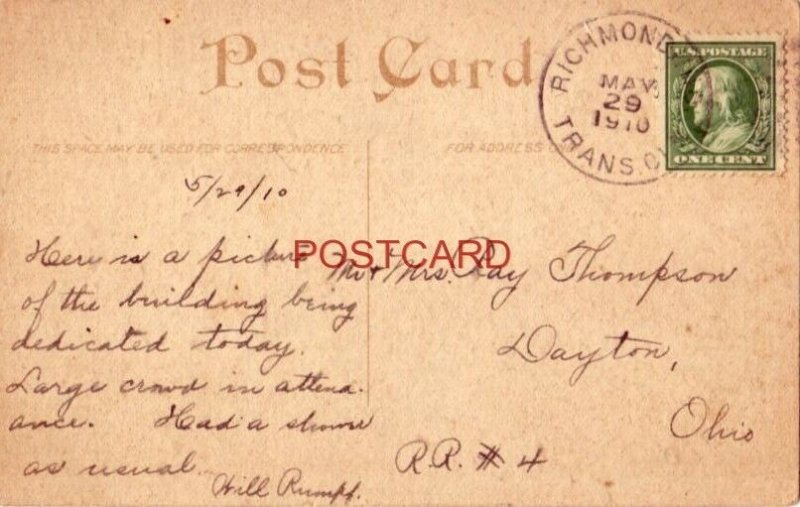 Post Card
RICHMOND
MAY
29
1910
TRANS.
U.S. POSTAGE
ONE CENT
THIS SPACE MAY BE USED FOR CORRESPONDENCE
FOR ADDRESS
5/29/10
Here is a picture
of the building being
dedicated today.
Large crowd in attend-
ance. Had a shower
as usual.
Will Rumpf.
POSTCARD
Mr + Mrs. Ray Thompson
Dayton,
Ohio
R.R. # 4